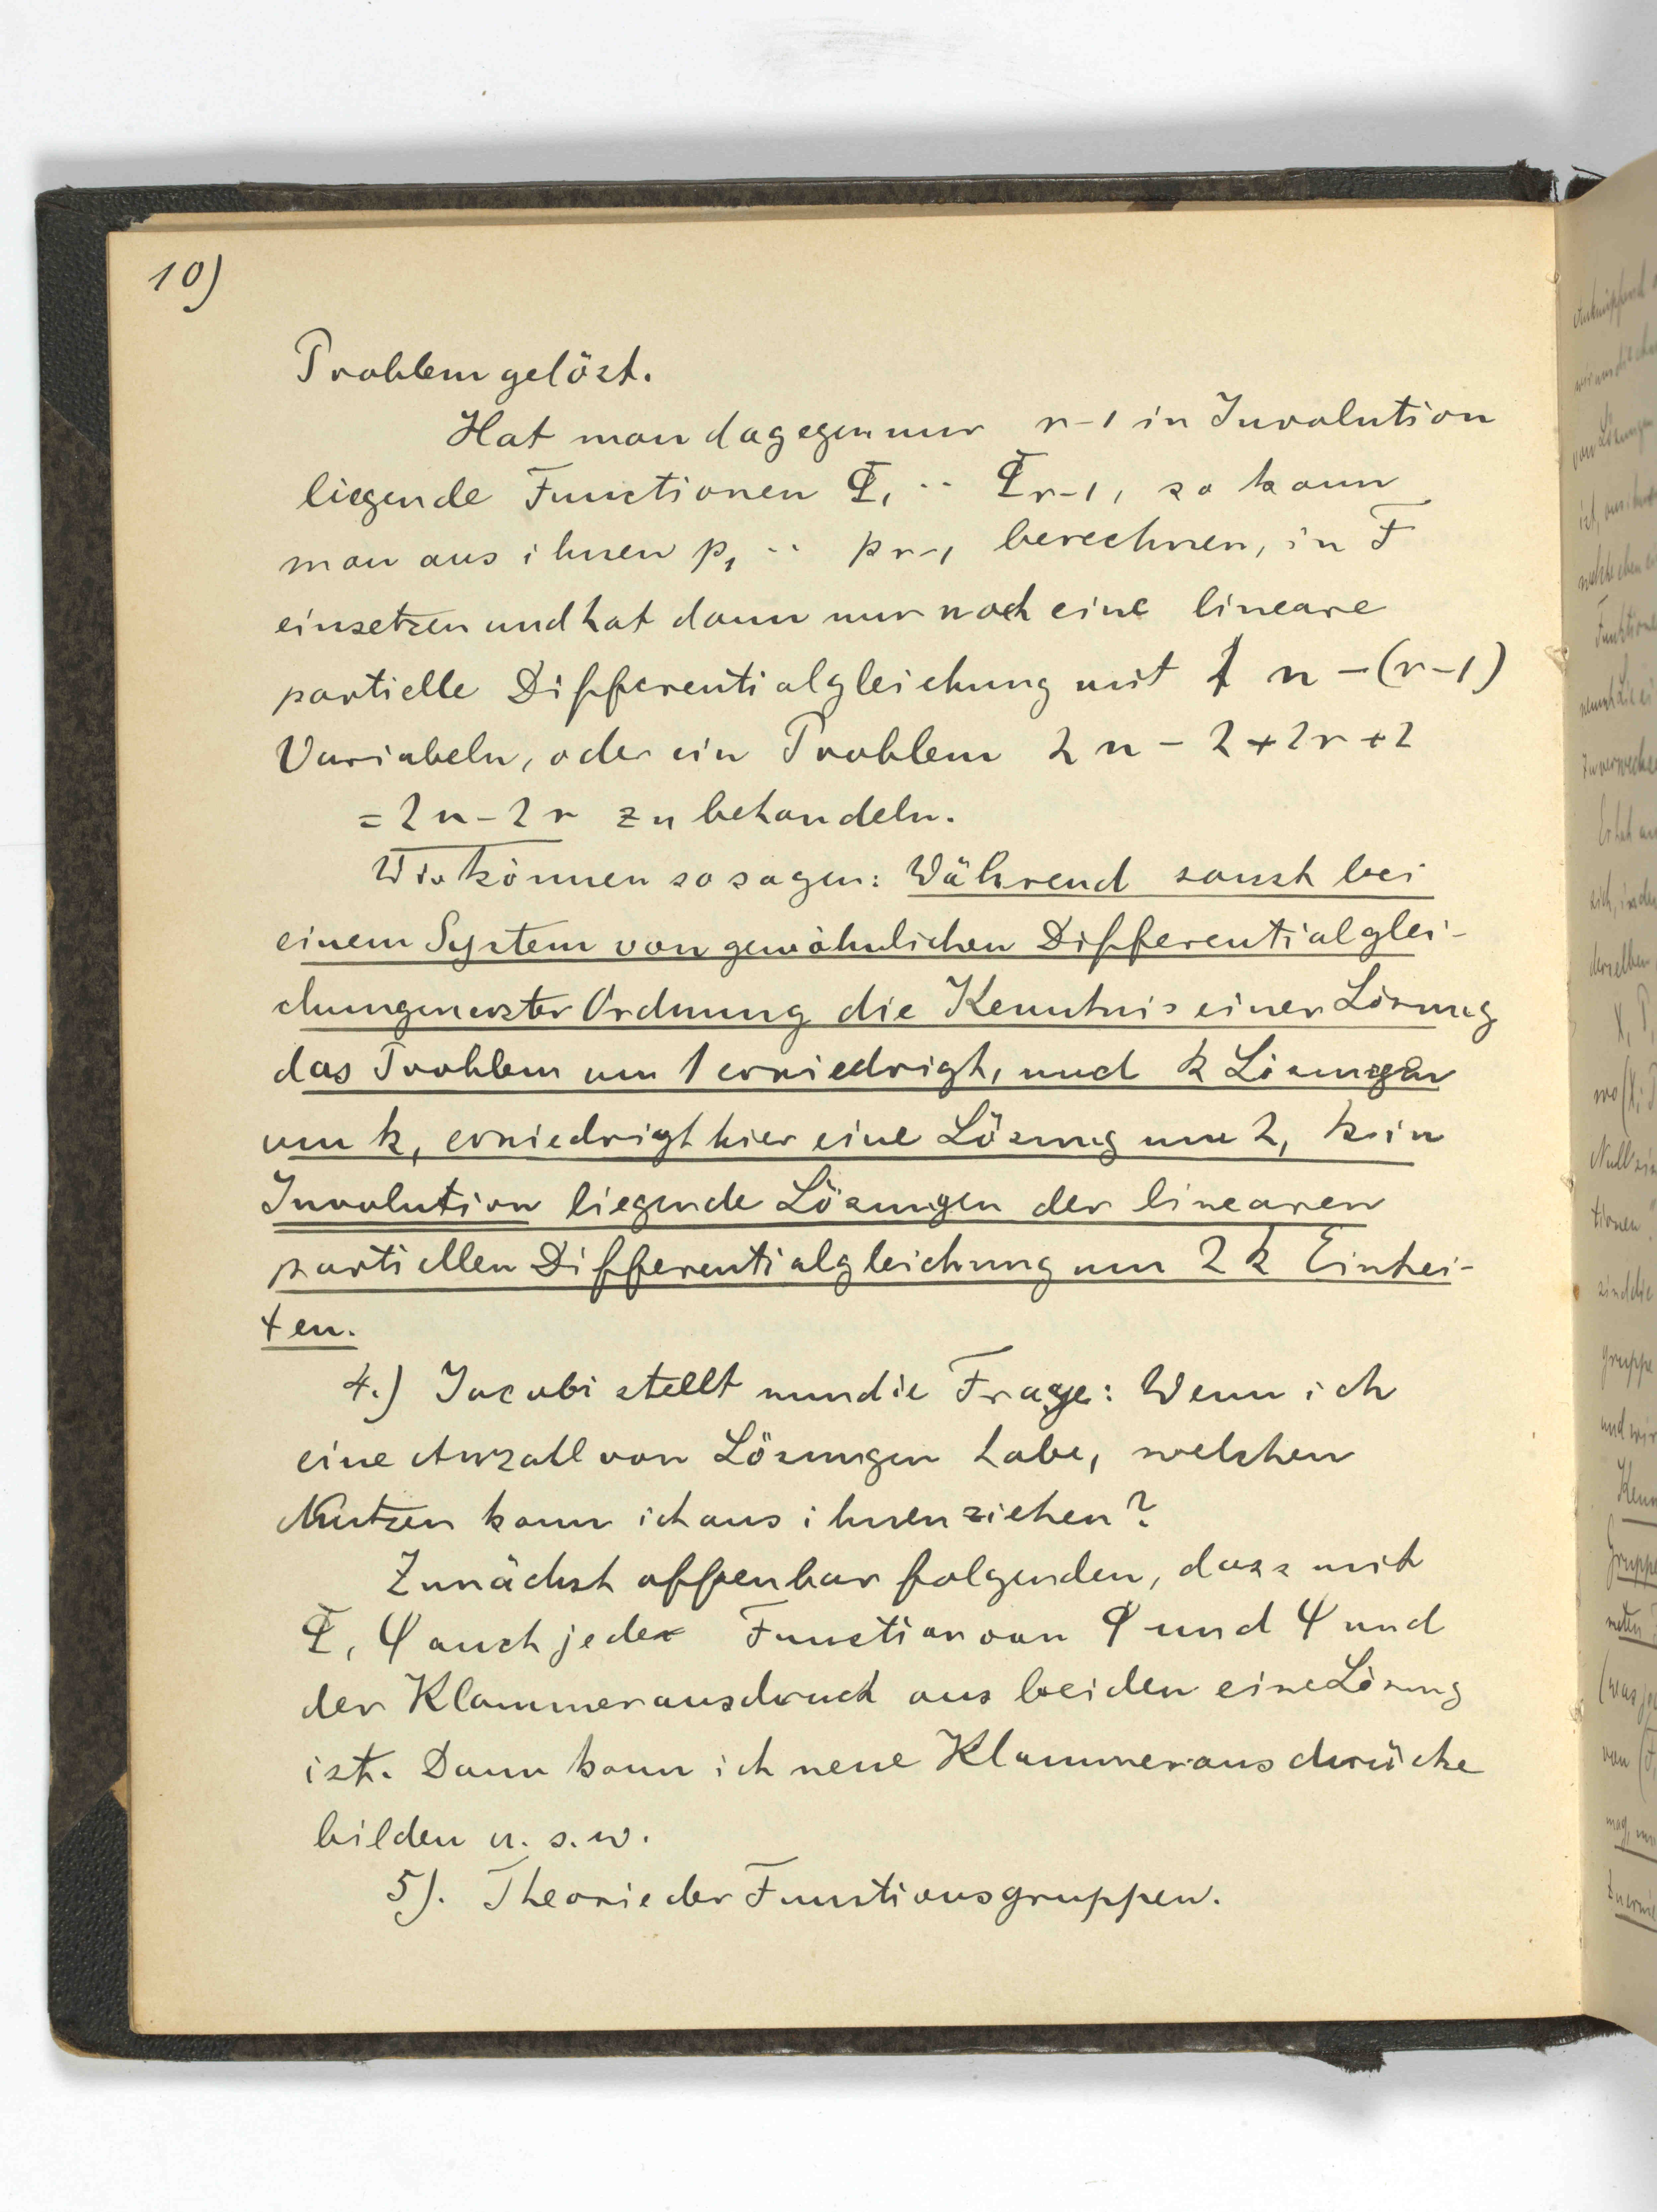 10)
Problem gelöst.
Hat man dagegen nur r-1 in Involution
liegende Functionen Φ₁ ·· Φᵣ₋₁, so kann
man aus ihnen p₁ ·· pᵣ₋₁ berechnen, in F
einsetzen und hat dann nur noch eine lineare
partielle Differentialgleichung mit n-(r-1)
Variabeln, oder ein Problem 2n-2+2r+2
=2n-2r zu behandeln.
Wir können so sagen: Während sonst bei
einem System von gewöhnlichen Differentialglei-
chungen erster Ordnung die Kenntnis einer Lösung
das Problem um 1 erniedrigt, und k Lösungen
um k, erniedrigt hier eine Lösung um 2, k in
Involution liegende Lösungen der linearen
partiellen Differentialgleichung um 2k Einhei-
ten.
4.) Jacobi stellt nun die Frage: Wenn ich
eine Anzahl von Lösungen habe, welchen
Nutzen kann ich aus ihnen ziehen?
Zunächst offenbar folgenden, dass mit
Φ, Ψ auch jede Function von φ und Ψ und
der Klammerausdruck aus beiden eine Lösung
ist. Dann kann ich neue Klammerausdrücke
bilden u. s. w.
5). Theorie der Functionsgruppen.